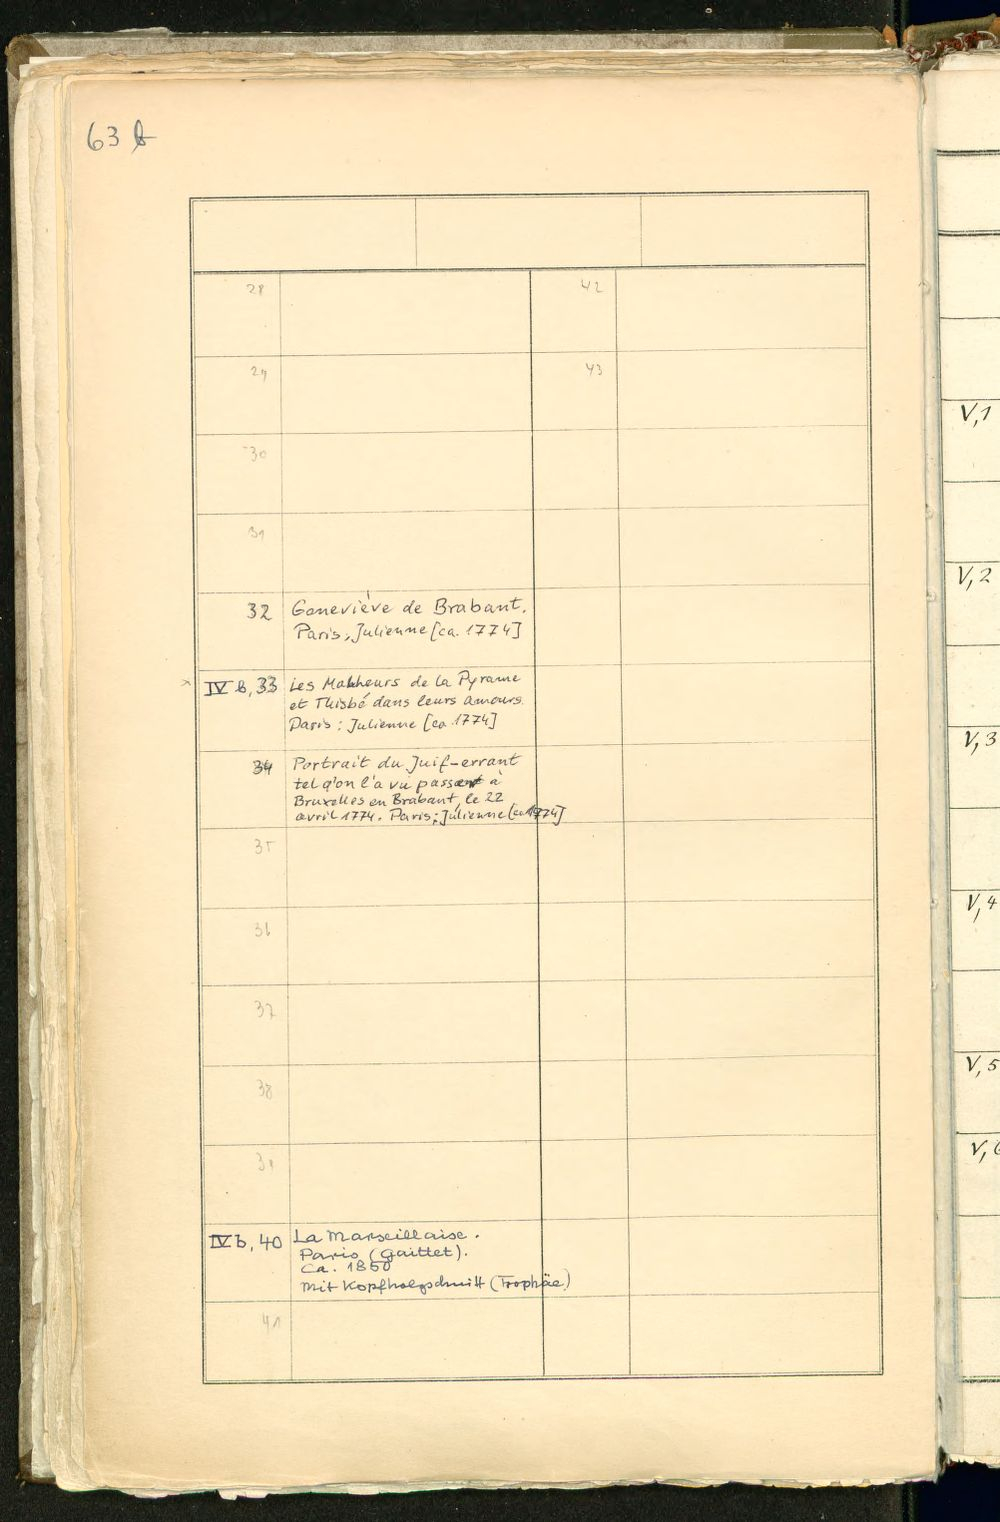 63 b
28
29
30
31
32 Geneviève de Brabant.
Paris, Julienne [ca. 1774]
IV b, 33 Les Malheurs de la Pyrame
et Thisbé dans leurs amours.
Paris: Julienne [ca 1774]
34 Portrait du Juif-errant
tel q'on l'a vu passer à
Bruxelles en Brabant, le 22
avril 1774. Paris: Julienne [ca 1774]
35
36
37
38
39
IV b, 40 La Marseillaise.
Paris (Gaittet).
Ca. 1850
mit Kopfholzschnitt (Trophäe)
41
42
43
V,1
V,2
V,3
V,4
V,5
V,6